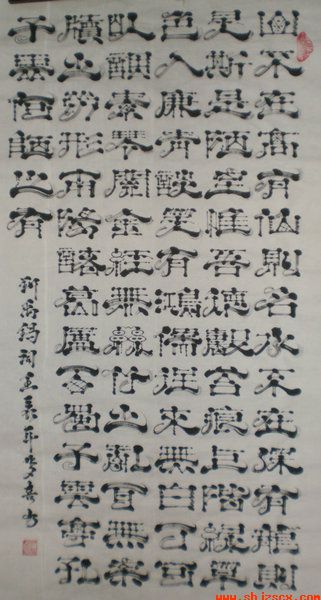 山不在高有仙則名水不在深有龍則
靈斯是陋室惟吾德馨苔痕上階綠草
色入簾青談笑有鴻儒往來無白丁可
以調素琴閱金經無絲竹之亂耳無案
牘之勞形南陽諸葛廬西蜀子雲亭孔
子雲何陋之有
劉禹錫
www.shjzscx.com